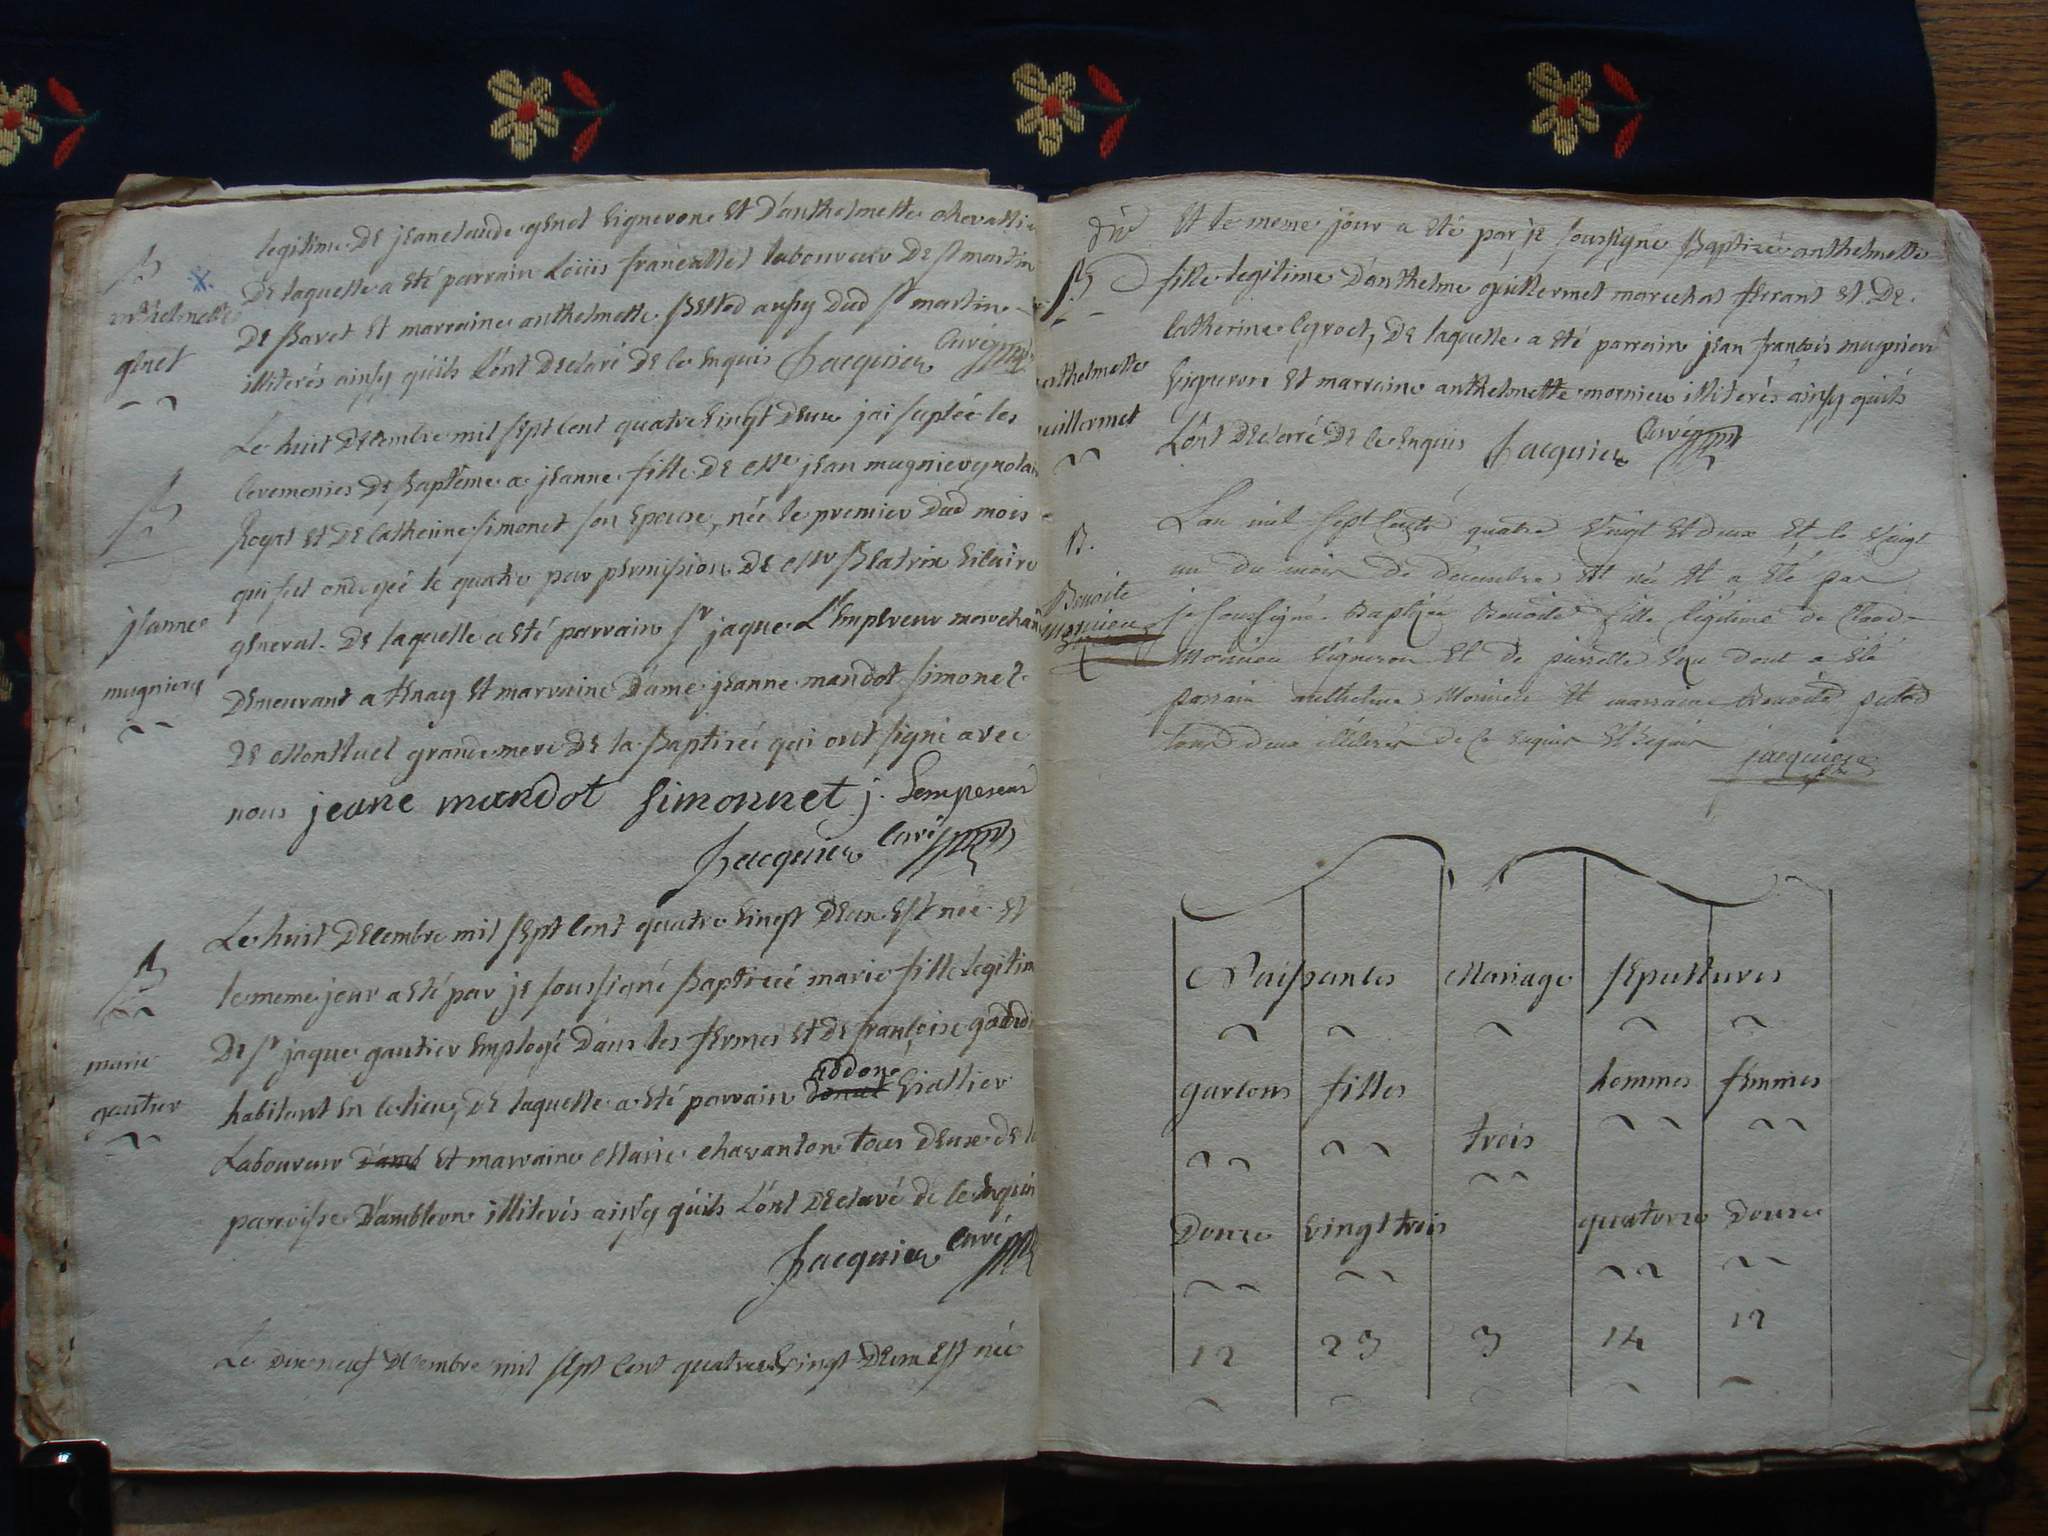 B
anthelmette
genet
legitime de jean claude genet vigneron et d'anthelmette chevallie
de laquelle a été parrain Loüis françallet laboureur de st martin
de Bavet et marraine anthelmette Bettod aussy dud st martin
illiterés ainsy qu'ils l'ont declaré de ce enquis Jacquier Curé
B
jeanne
mugniery
Le huit decembre mil sept cent quatre vingt deux jai suplée les
ceremonies de Baptême a jeanne fille de Me jean mugniery notai
Royal et de Catherine simonet son epouse, née le premier dud mois
qui fut ondoyée le quatre par permission de Mr Blatrix vicaire
general. de laquelle a été parrain sr jaque L'Empereur marchan
demeurant a et marraine dame jeanne mandot simonet
de Montluel grande mere de la Baptisée qui ont signé avec
nous jeane mandot simonnet j. Lempereur
Jacquier Curé
B
marie
gautier
Le huit decembre mil sept cent quatre vingt deux est née et
le meme jour a été par je soussigné Baptizeé marie fille legitim
de sr jaque gautier employé dans les fermes et de françoise
habitant en ce lieu, de laquelle a été parrain addoné viallier
Laboureur et marraine Marie chavanton tous deux de la
parroisse d'ambleon illiterés ainsy qu'ils l'ont declaré de ce enquis
Jacquier Curé
Le dixneuf decembre mil sept cent quatre vingt deux est née
B
anthelmette
guillermet
et le meme jour a été par je soussigné Baptizeé anthelmette
fille legitime d'anthelme guillermet marechal ferrant et de
Catherine Cyvoct, de laquelle a été parrain jean françois mugnier
vigneron et marraine anthelmette mornieu illiterés ainsy qu'ils
l'ont declaré de ce enquis Jacquier Curé
B.
Benoite
Mornieu
L'an mil sept cents quatre vingt et deux et le vingt
un du mois de decembre est née et a été par
je soussigné Baptizée Benoite fille legitime de Claude
Mornieu vigneron et de pierrette dont a été
parrain anthelme Mornieu et marraine Benoite
tous deux illiterés de ce enquis jacquier
Naissances Mariage sepultures
garçons filles hommes femmes
trois
Douze vingt trois quatorze Douze
12 23 3 14 12